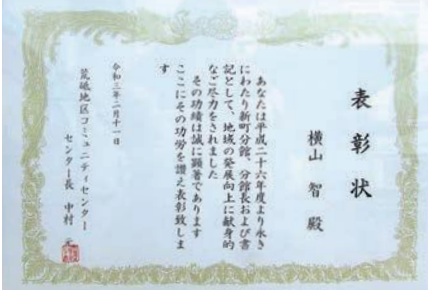 表彰状
横山 智 殿
あなたは平成二十六年度より永き
にわたり新町分館、分館長および書
記として、地域の発展向上に献身的
なご尽力をされました
その功績は誠に顕著であります
ここにその功労を讃え表彰致しま
す
令和三年二月十一日
荒砥地区コミュニティセンター
センター長 中村